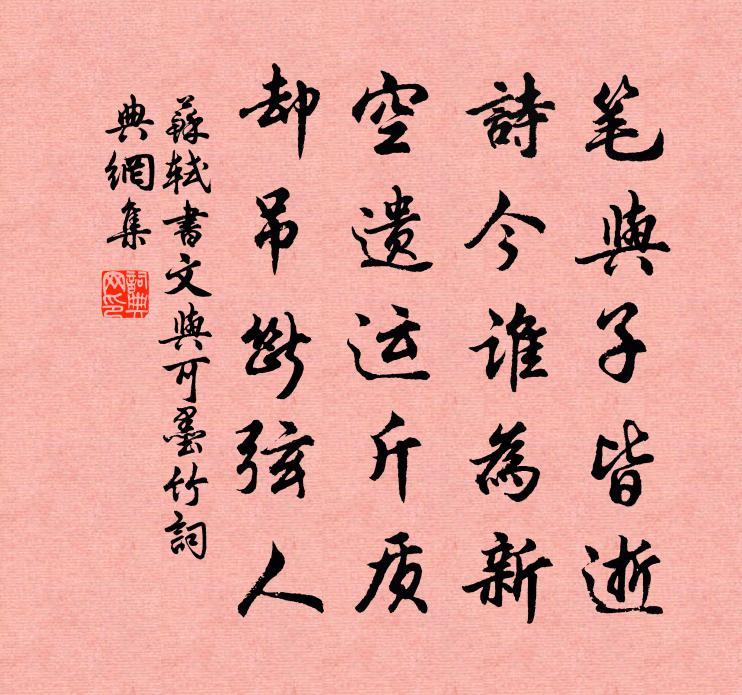 笔與子皆逝
詩今谁為新
空遗运斤质
却吊断弦人
蘇軾書文與可墨竹詞
典網集
詞典网印